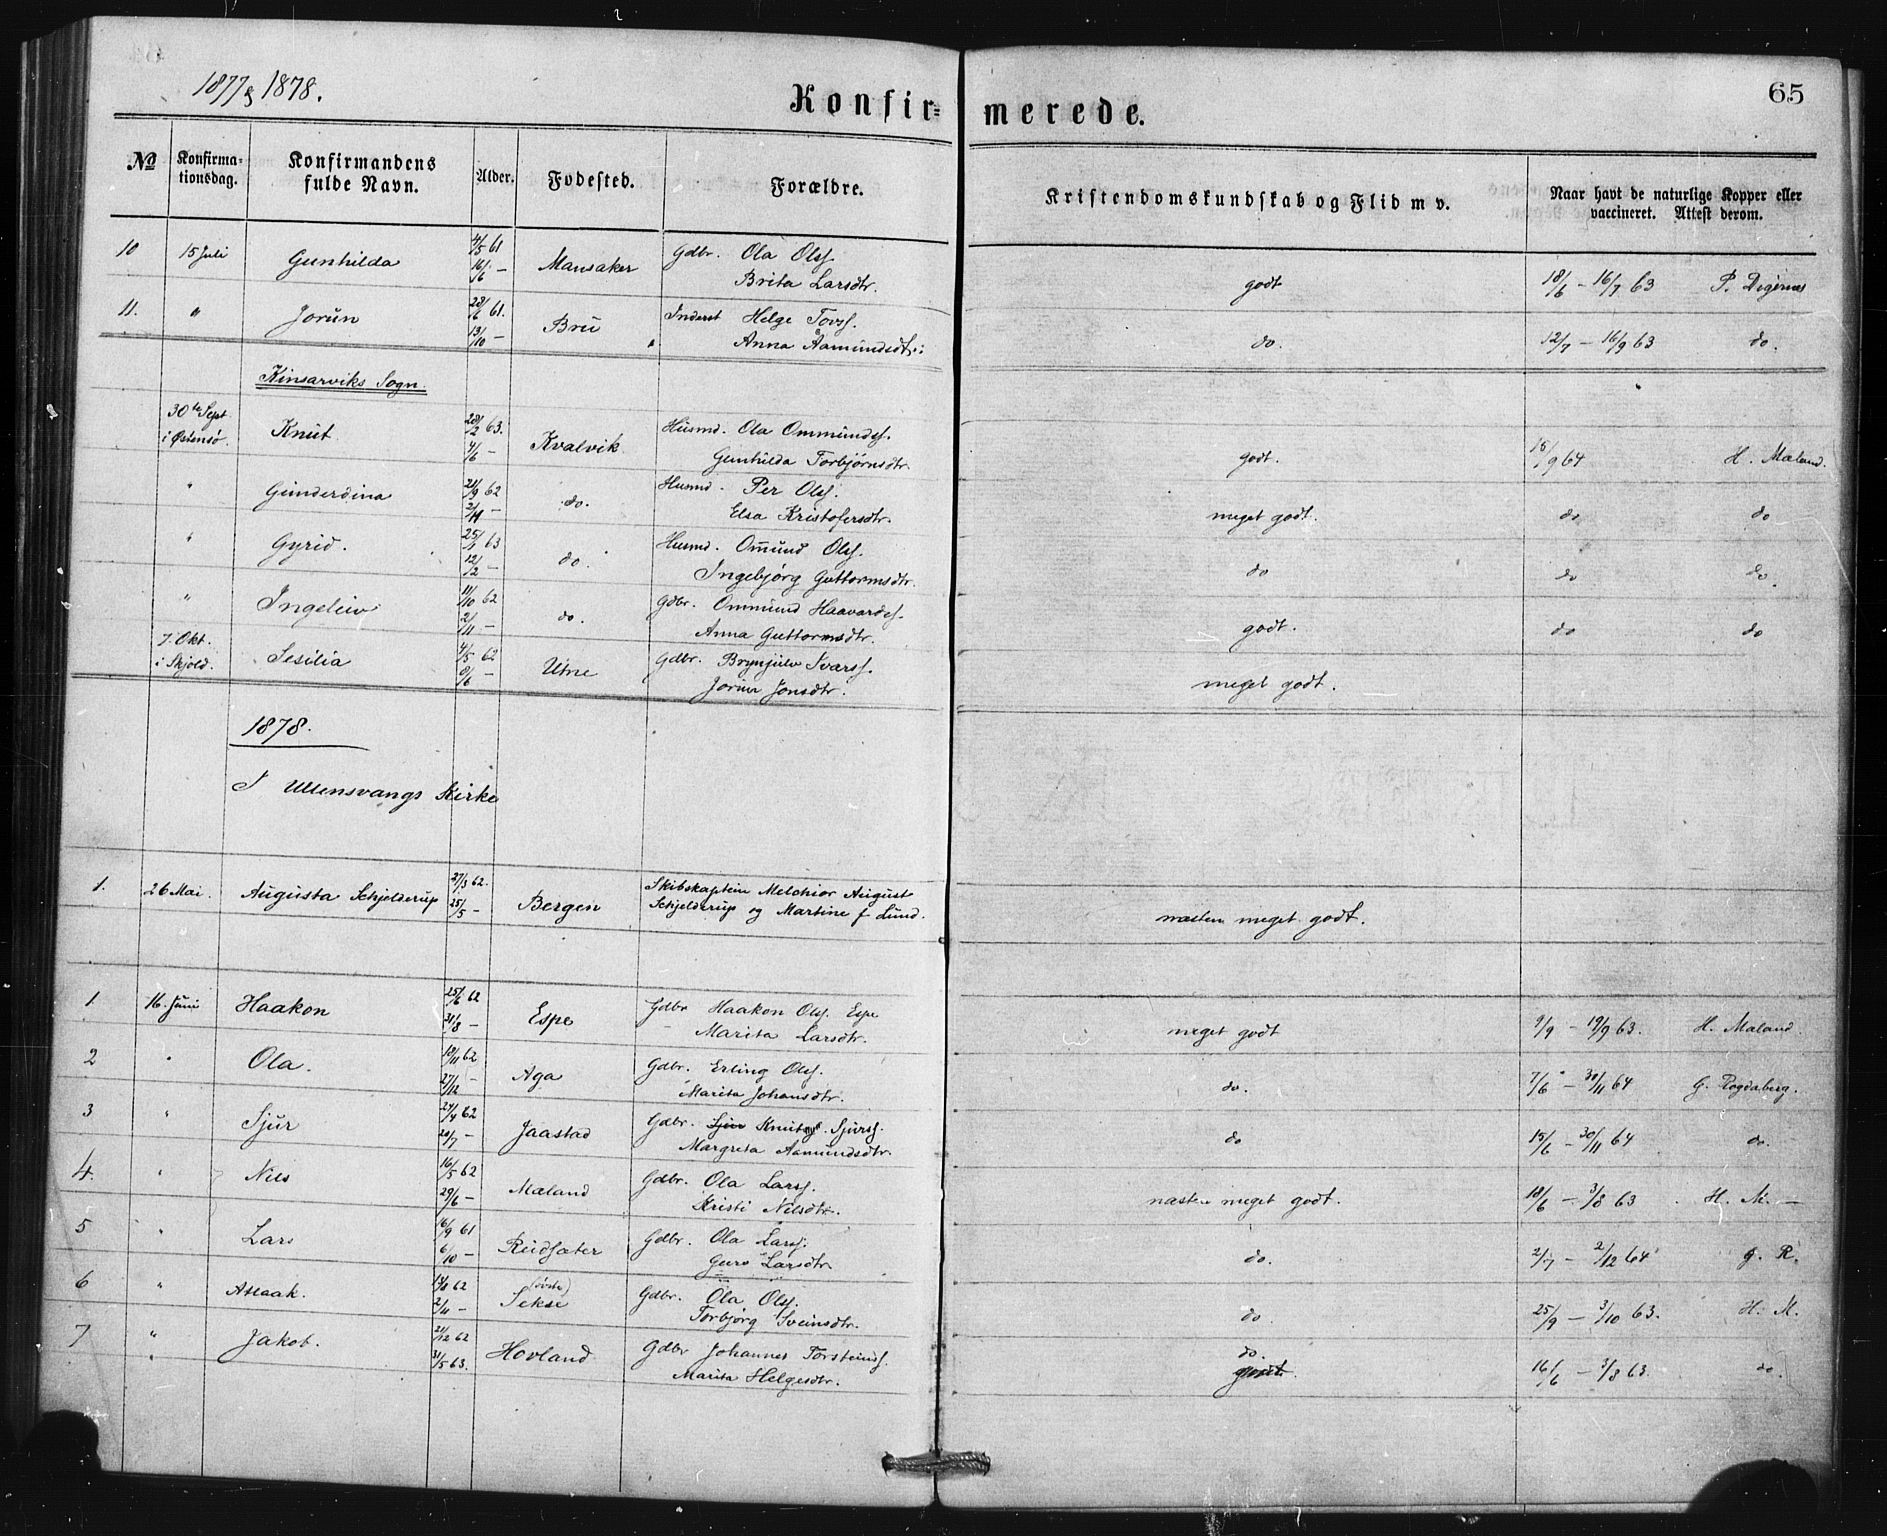 1877 & 1878.
Konfirmerede.
65
No
Konfirmationsdag.
Konfirmandens fulde Navn.
Alder.
Fødested.
Forældre.
Kristendomskundskab og Flid m v.
Naar havt de naturlige Kopper eller vaccineret. Attest derom.
10 15 Juli Gunhilda 4/5 61 16/6 — Mansaker Gdbr. Ola Olsf. godt 18/6 — 16/7 63 P. Digernes
Brita Larsdtr.
11. " Jorun 28/6 61. 13/10 — Bru Inderst Helge Tovsf. do. 12/7 — 16/9 63 do.
Anna Aamundsdtr.
Kinsarviks Sogn.
30te Sept i Østensø. Knut 28/2 63. 4/6 — Kvalvik Husmd. Ola Ommundsf. godt. 9 64 H. Mæland.
Gunhilda Torbjørnsdtr.
" Gunderdina 21/9 62 2/11 — do. Husmd. Per Olsf. meget godt. do do
Elsa Kristofersdtr.
" Gyrid. 25/1 63 12/2 — do. Husmd. Omund Olsf. do do do.
Ingebjørg Guttormsdtr.
" Ingeleiv 11/10 62 2/11 — do. Gdbr. Ommund Haavardsf. godt. do do
Anna Guttormsdtr.
7. Okt. i Skjold. Sesilia 4/5 62 8/6 — Utne Gdbr. Brynjulv Ivarsf. meget godt.
Jorun Jonsdtr.
1878.
I Ullensvangs Kirke
1. 26 Mai. Augusta Schjelderup 27/3 62. 25/5 — Bergen Skibskaptein Melchior August
Schjelderup og Martine f. Lund. næsten meget godt.
1 16. Juni Haakon 25/6 62 31/8 — Espe Gdbr Haakon Olsf. Espe meget godt 9/9 — 19/9 63. H. Mæland.
Marita Larsdtr.
2 " Ola. 18/11 62 27/12 — Aga Gdbr. Erling Olsf. do. 7/6 — 30/11 64 G. Rogdaberg.
Marita Johansdtr.
3 " Sjur 24/4 62 20/7 — Jaastad Gdbr. Knut Sjursf. do 15/6 — 30/11 64 do.
Margreta Aamundsdtr.
4. " Nils 16/5 62 29/6 — Mæland Gdbr. Ola Larsf. næsten meget godt. 18/6 — 3/8 63 H. M. —
Kristi Nilsdtr.
5 " Lars 16/9 61 6/10 — Reidsæter Gdbr. Ola Larsf. do. 2/7 — 2/12 64 G. R.
Guro Larsdtr.
6 " Aslaak. 62 2/11 — Sekse Gdbr. Ola Olsf. do. 25/9 — 3/10 63. H. M.
Torbjørg Sveinsdtr.
7 " Jakob. 21/12 62 31/5 63. Hovland Gdbr Johannes Torsteinsf. do. 16/6 — 3/8 63. do.
Marita Helgesdtr. godt.